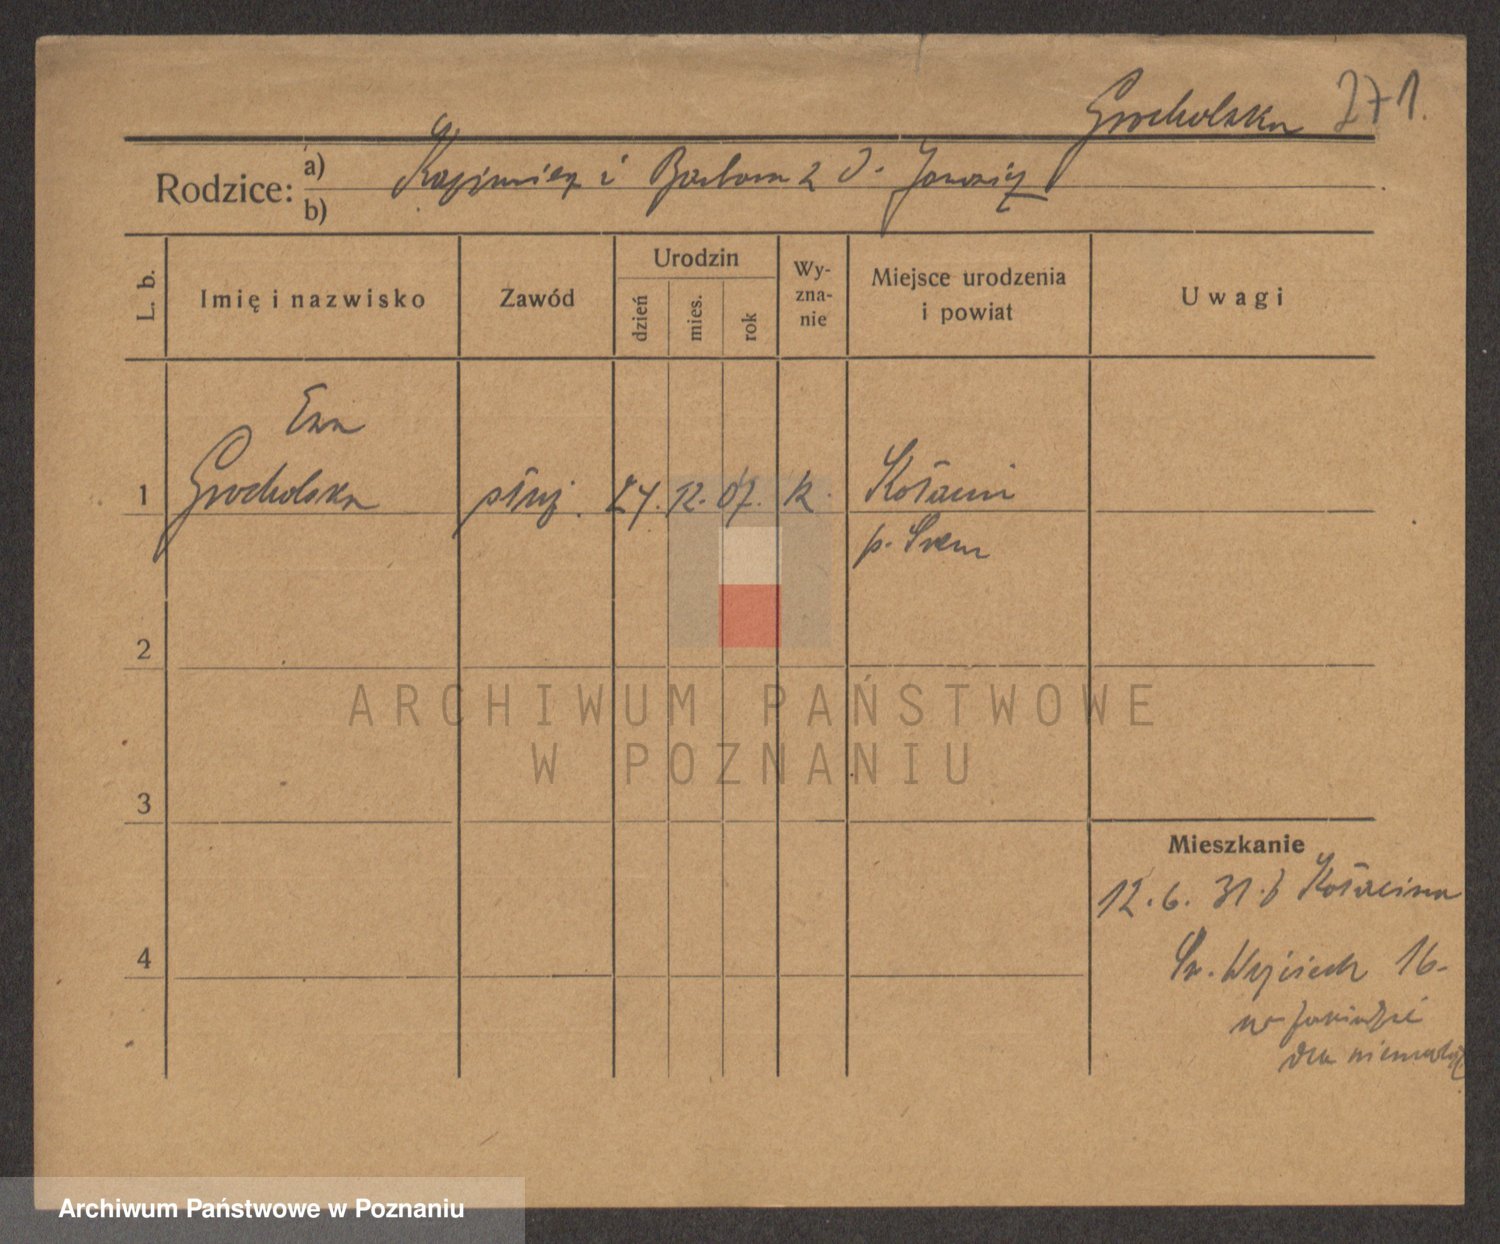 Grocholska 271.
Rodzice: a) Kazimierz i Barbara z d. Janszig
b)
L. b. Imię i nazwisko Zawód Urodzin dzień mies. rok Wy-zna-nie Miejsce urodzenia i powiat Uwagi
Ewa
1 Grocholska służ. 24. 12. 07. k. Kołacin
p. Śrem
2
3
4
Mieszkanie
12. 6. 31. z Kołacina
Św. Wojciech 16
w
dla
ARCHIWUM PAŃSTWOWE
W POZNANIU
Archiwum Państwowe w Poznaniu